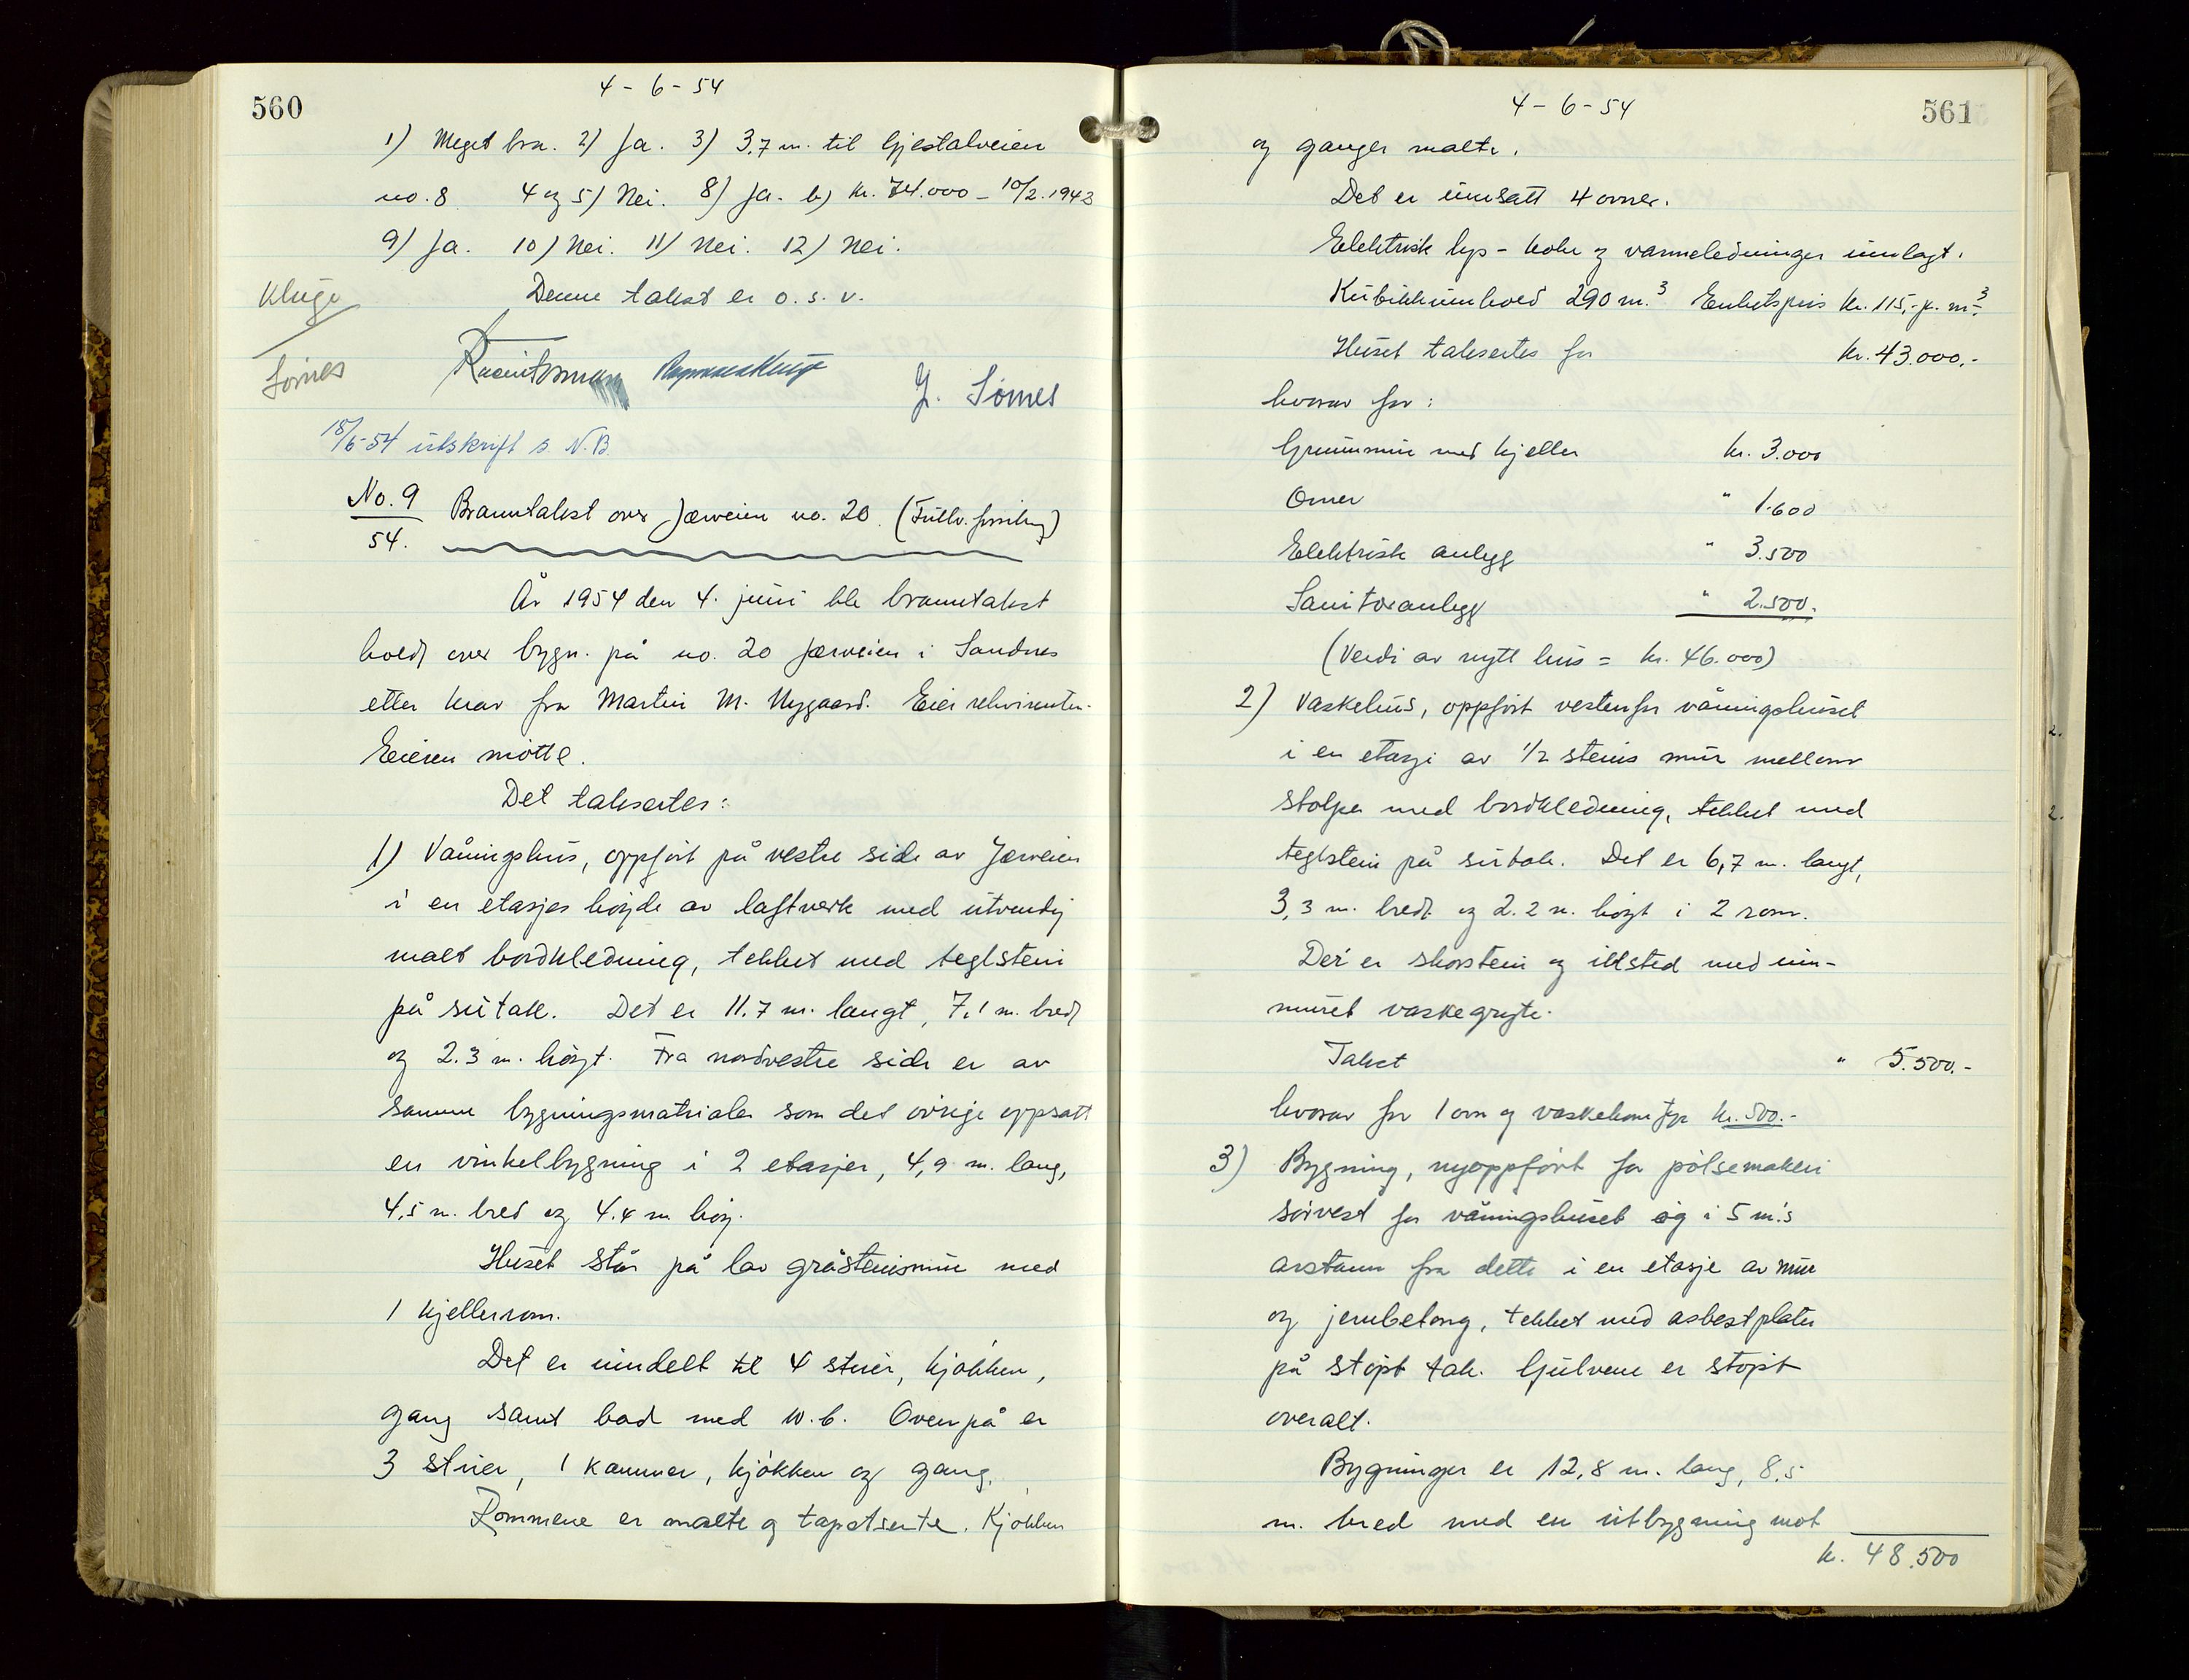 560
4-6-54
1) Meget bra. 2) Ja. 3) 3,7 m. til Gjestalveien
no. 8 4 og 5) Nei. 8) Ja. b) kr. 74.000 - 10/2.1943
9) Ja. 10) Nei. 11) Nei. 12) Nei.
Kluge
Denne takst er o. s. v.
Sömes
J. Sömes
18/6-54 utskrift s. N.B.
No. 9
54.
Branntakst over Jærveien no. 20. (Fullv. forsikring)
År 1954 den 4. juni ble branntakst
holdt over bygn. på no. 20 Jærveien i Sandnes
etter krav fra Martin M. Nygaard. Eier rekvirenten.
Eieren mötte.
Det taksertes:
1) Våningshus, oppfört på vestre side av Jærveien
i en etasjes höyde av laftverk med utvendig
malt bordkledning, tekket med teglstein
på sutak. Det er 11.7 m. langt, 7,1 m. bredt
og 2.3 m. höyt. Fra nordvestre side er av
samme bygningsmatrialer som det övrige oppsatt
en vinkelbygning i 2 etasjer, 4,9 m. lang,
4,5 m. bred og 4.4 m höy.
Huset står på lav gråsteinsmur med
1 kjellerrom.
Det er inndelt til 4 stuer, kjökken,
gang samt bad med w.c. Ovenpå er
3 stuer, 1 kammer, kjökken og gang.
Rommene er malte og tapetserte. Kjökken
561
4-6-54
og ganger malte.
Det er innsatt 4 ovner.
Elektrisk lys- koke og varmeledninger innlagt.
Kubikkinnhold 290 m.³ Enhetspris kr. 115,- p. m³.
Huset taksertes for kr. 43.000.-
hvorav for:
Grunnmur med kjeller kr. 3.000
Ovner " 1.600
Elektrisk anlegg " 3.500
Sanitæranlegg " 2.500.
(Verdi av nytt hus = kr. 46.000)
2) Vaskehus, oppfört vestenfor våningshuset
i en etasje av 1/2 steins mur mellom
stolper med bordkledning, tekket med
teglstein på sutak. Det er 6,7 m. langt,
3,3 m. bredt og 2.2 m. höyt i 2 rom.
Der er skorstein og ildsted med inn-
muret vaskegryte.
Takst " 5.500.-
hvorav for 1 ovn og kr. 500.-
3) Bygning, nyoppfört for pölsemakeri
sörvest for våningshuset og i 5 m's
avstann fra dette i en etasje av mur
og jernbetong, tekket med asbestplater
på stöpt tak. Gulvene er stöpt
overalt.
Bygningen er 12,8 m. lang, 8,5
m. bred med en utbygning mot
k. 48.500